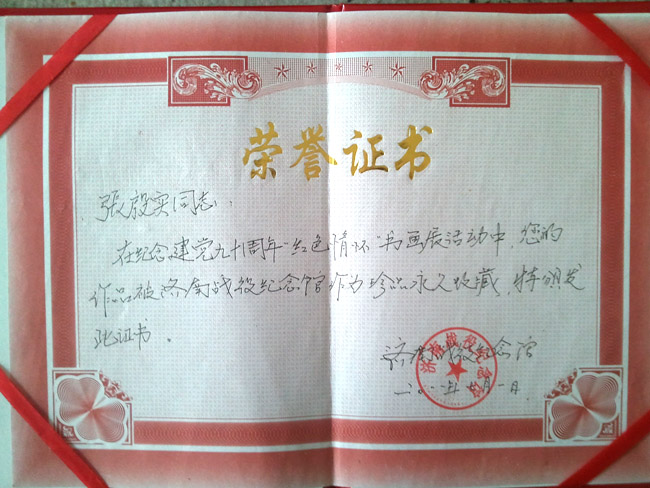 荣誉证书
張殿实同志：
在纪念建党九十周年"红色情怀"书画展活动中，您的
作品被济南战役纪念馆作为珍品永久收藏，特颁发
此证书。
济南战役纪念馆
二〇一一年七月一日